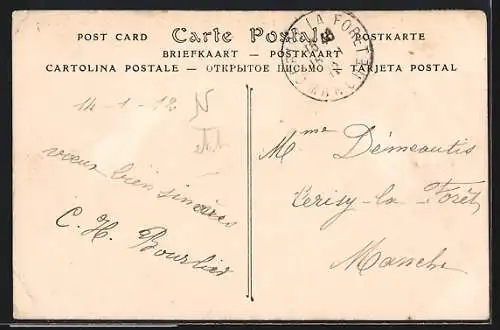 POST CARD Carte Postale POSTKARTE
BRIEFKAART — POSTKAART
CARTOLINA POSTALE — ОТКРЫТОЕ ПИСЬМО — TARJETA POSTAL
LA FORET
MANCHE
14-1-12
vœux bien sincères
C. H. Bourlier
Mme Démeautis
Cerisy-la-Forêt
Manche